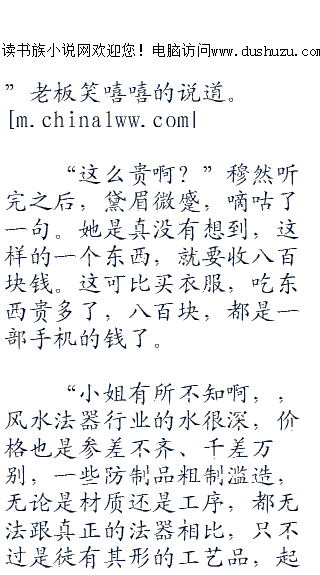 读书族小说网欢迎您！电脑访问www.dushuzu.com
”老板笑嘻嘻的说道。
[m.chinalww.com]
“这么贵啊？”穆然听
完之后，黛眉微蹙，嘀咕了
一句。她是真没有想到，这
样的一个东西，就要收八百
块钱。这可比买衣服，吃东
西贵多了，八百块，都是一
部手机的钱了。
“小姐有所不知啊，，
风水法器行业的水很深，价
格也是参差不齐、千差万
别，一些防制品粗制滥造，
无论是材质还是工序，都无
法跟真正的法器相比，只不
过是徒有其形的工艺品，起